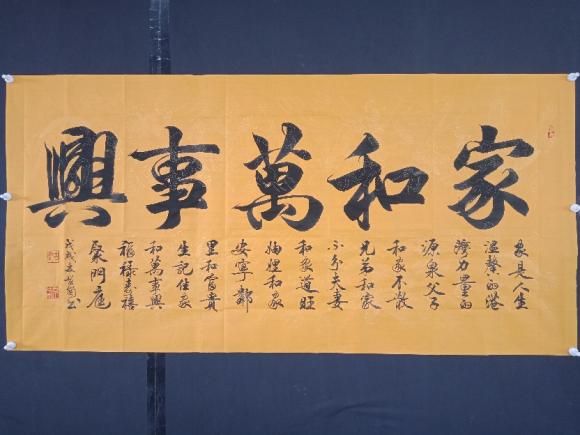 家和萬事興
家是人生
溫馨的港
灣力量的
源泉父子
和家不散
兄弟和家
不分夫妻
和家道旺
妯娌和家
安寧鄰
里和富貴
生記住家
和萬事興
福祿壽禧
聚門庭
戊戌